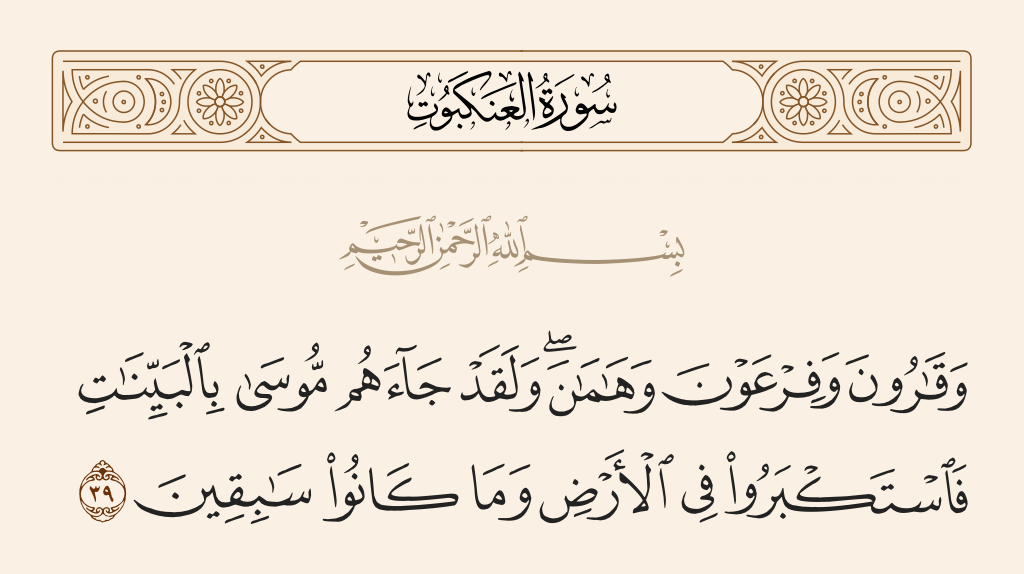 سُورَةُ العَنكَبُوتِ
بِسْمِ ٱللَّهِ ٱلرَّحْمَٰنِ ٱلرَّحِيمِ
وَقَٰرُونَ وَفِرْعَوْنَ وَهَٰمَٰنَ ۖ وَلَقَدْ جَآءَهُم مُّوسَىٰ بِٱلْبَيِّنَٰتِ
فَٱسْتَكْبَرُوا۟ فِى ٱلْأَرْضِ وَمَا كَانُوا۟ سَٰبِقِينَ ٣٩